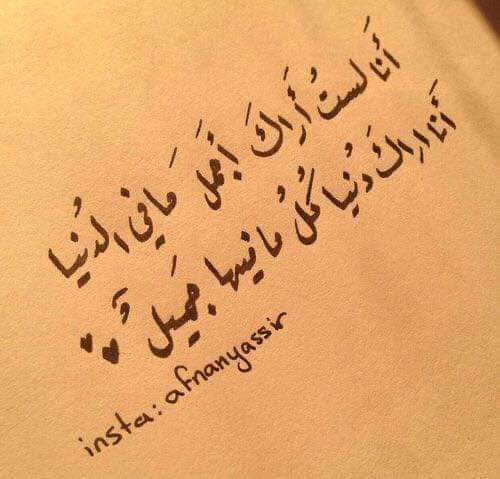 أنا لستُ أَراكَ أجمَل مَا في الدُنيا
أَنا اراكَ دُنيا كُلُ ما فيها جَميلٌ
insta: afnanyassir